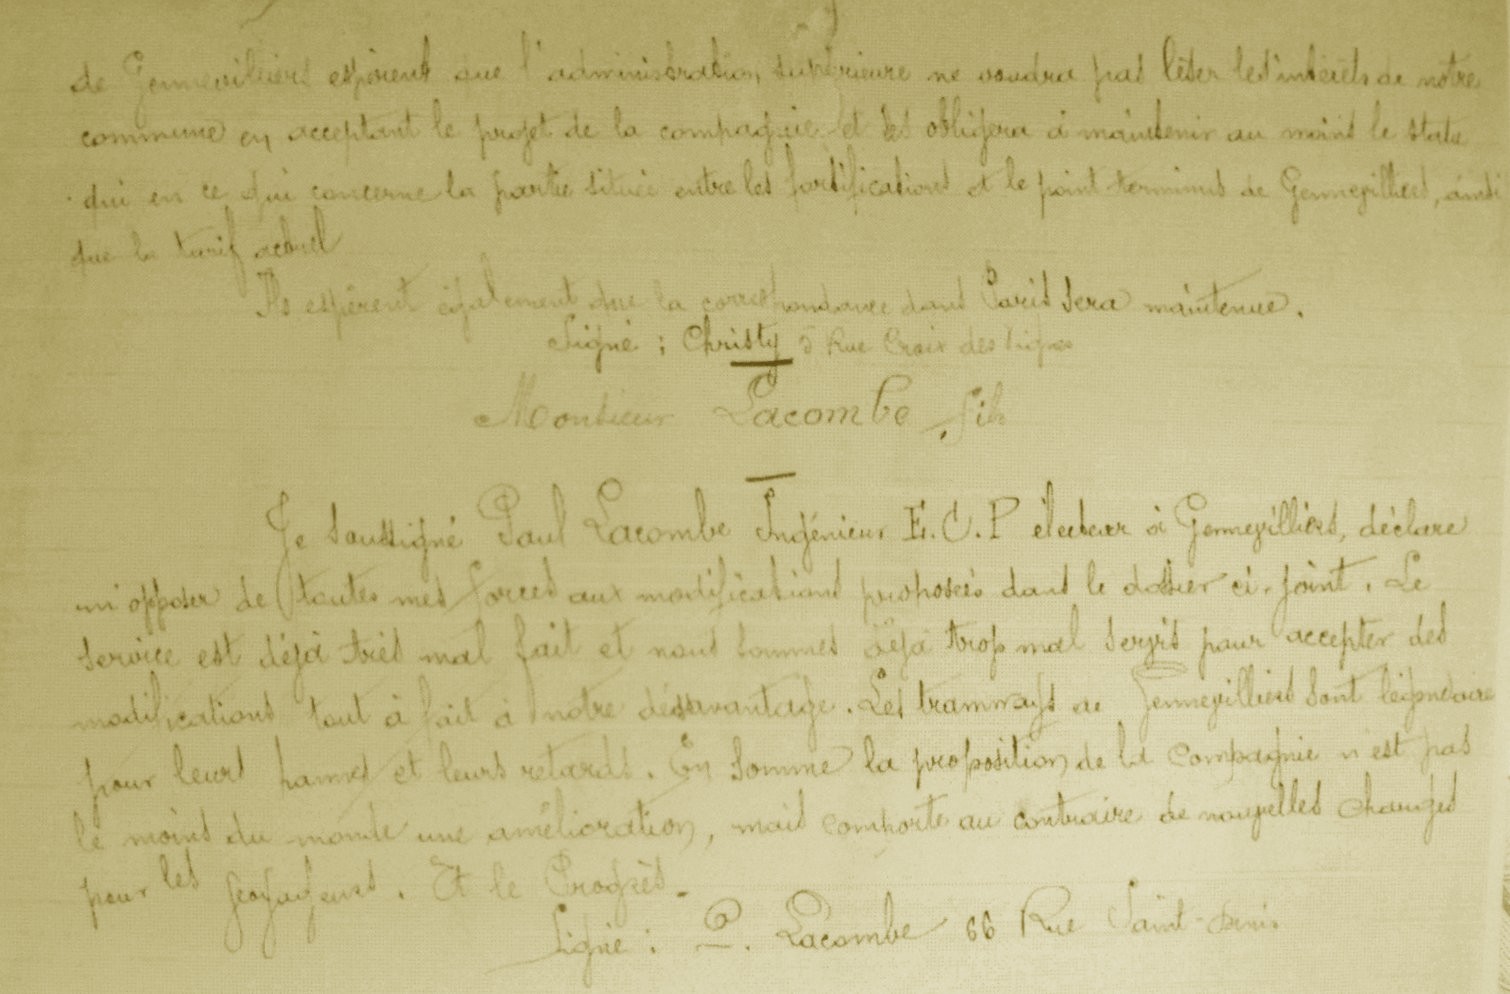 de Gennevilliers espèrent que l'administration supérieure ne voudra pas léser les intérêts de notre
commune en acceptant le projet de la compagnie et les obligera à maintenir au moins le statu
quo en ce qui concerne la partie située entre les fortifications et le point terminus de Gennevilliers, ainsi
que le tarif actuel
Ils espèrent également que la correspondance dans Paris sera maintenue.
Signé : Christy 5 Rue Croix des Vignes
Monsieur Lacombe fils
Je soussigné Paul Lacombe Ingénieur E.C.P électeur à Gennevilliers, déclare
m'opposer de toutes mes forces aux modifications proposées dans le dossier ci-joint. Le
service est déjà très mal fait et nous sommes déjà trop mal servis pour accepter des
modifications tout à fait à notre désavantage. Les tramways de Gennevilliers sont légendaire
pour leurs pannes et leurs retards. En somme la proposition de la Compagnie n'est pas
le moins du monde une amélioration, mais comporte au contraire de nouvelles charges
pour les . Et le Progrès.
Signé : P. Lacombe 66 Rue Saint-Denis